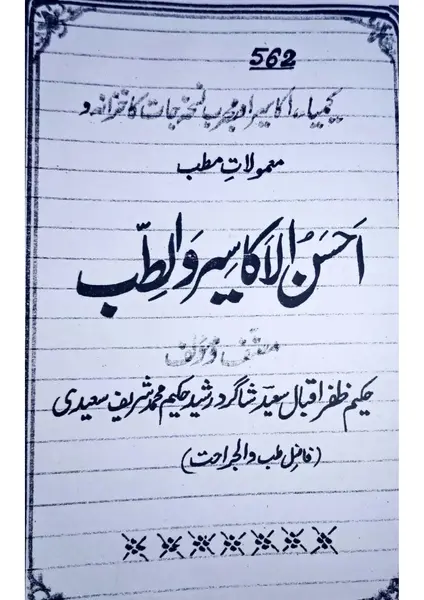 562
کیمیاء، اکاسیر اور مجرب نسخہ جات کا خزانہ و
معمولاتِ مطب
اَحسَنُ الاَکاسِیر وَالطِّب
مصنف و مؤلف
حکیم ظفر اقبال سعید شاگرد رشید حکیم محمد شریف سعیدی
(فاضل طب والجراحت)